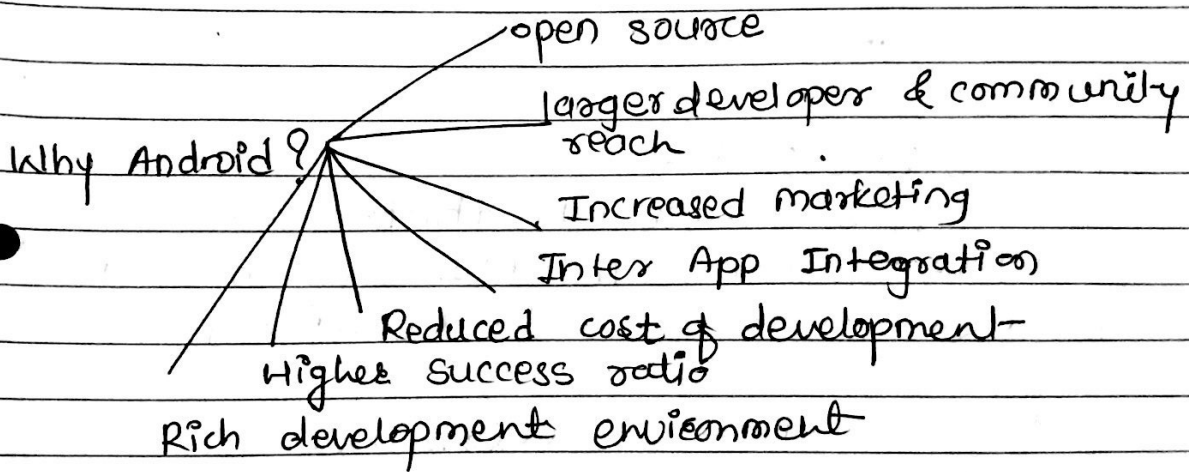 open source
larger developer & community
reach
Why Android?
Increased marketing
Inter App Integration
Reduced cost of development
Higher success ratio
Rich development environment